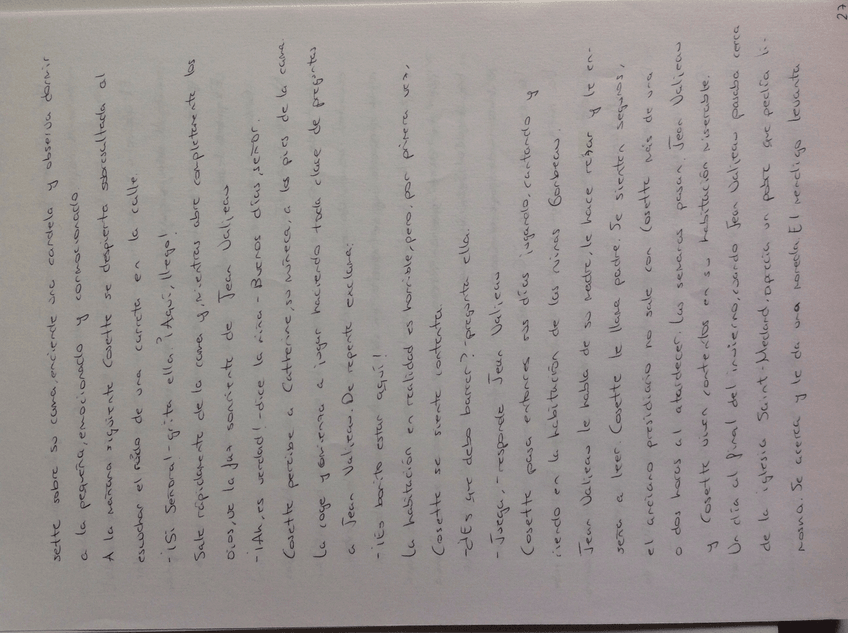 27
sette sobre su cama, enciende una candela y observa dormir
a la pequeña, emocionado y conmocionado
A la mañana siguiente Cosette se despierta sobresaltada al
escuchar el ruido de una carreta en la calle.
- ¡Sí Señora! - grita ella ¡Aquí, llego!
Sale rápidamente de la cama y, mientras abre completamente los
ojos, ve la faz sonriente de Jean Valjean
- ¡Ah, es verdad! - dice la niña - Buenos días, señor.
Cosette percibe a Catherine, su muñeca, a los pies de la cama.
La coge y comienza a jugar haciendo toda clase de preguntas
a Jean Valjean. De repente exclama:
- ¡Es bonito estar aquí!
La habitación en realidad es horrible, pero, por primera vez,
Cosette se siente contenta.
- ¿Es que debo barrer? - pregunta ella.
- Juega, - responde Jean Valjean
Cosette pasa entonces sus días jugando, cantando y
riendo en la habitación de las ruinas Gorbeau.
Jean Valjean le habla de su madre, le hace rezar y le en-
seña a leer. Cosette le llama padre. Se sienten seguros,
el anciano presidiario no sale con Cosette más de una
o dos horas al atardecer. Las semanas pasan. Jean Valjean
y Cosette viven contentos en su habitación miserable.
Un día al final del invierno, cuando Jean Valjean pasaba cerca
de la iglesia Saint-Medard, aprecia un pobre que pedía li-
mosna. Se acerca y le da una moneda. El mendigo levanta